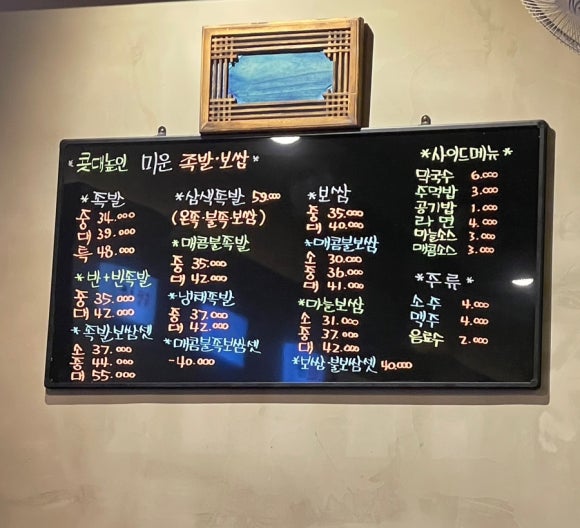 *콧대높인 미운 족발·보쌈*
*족발
중 34.000
대 39.000
특 48.000
*반+반족발
중 35.000
대 42.000
*족발보쌈셋
소 37.000
중 44.000
대 55.000
*삼색족발 59.000
(온족·불족·보쌈)
*매콤불족발
중 35.000
대 42.000
*냉채족발
중 37.000
대 42.000
*매콤불족보쌈셋
-40.000
*보쌈
중 35.000
대 40.000
*매콤불보쌈
소 30.000
중 36.000
대 41.000
*마늘보쌈
소 31.000
중 37.000
대 42.000
*보쌈·불보쌈셋 40.000
*사이드메뉴*
막국수 6.000
주먹밥 3.000
공기밥 1.000
라면 4.000
마늘소스 3.000
매콤소스 3.000
*주류*
소주 4.000
맥주 4.000
음료수 2.000